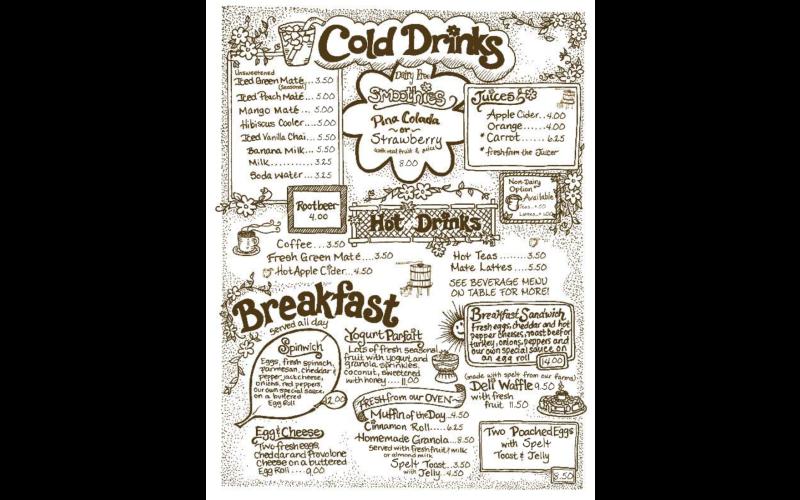 Cold Drinks
Unsweetened
Iced Green Maté... 3.50
(Seasonal)
Iced Peach Maté... 5.00
Mango Maté... 5.00
Hibiscus Cooler.... 5.00
Iced Vanilla Chai... 5.50
Banana Milk... 5.50
Milk........... 3.25
Soda Water... 3.25
Dairy Free
Smoothies
Pina Colada
~ or ~
Strawberry
with real fruit & juice
8.00
Juices
Apple Cider.. 4.00
Orange....... 4.00
*Carrot...... 6.25
*fresh from the Juicer
Rootbeer
4.00
Non-Dairy
Option
Available
Teas..+.50
Lattes..+1.00
Hot Drinks
Coffee... 3.50
Fresh Green Maté.... 3.50
Hot Apple Cider... 4.50
Hot Teas ........ 3.50
Maté Lattes.... 5.50
SEE BEVERAGE MENU
ON TABLE FOR MORE!
Breakfast
served all day
Spinwich
Eggs, fresh spinach,
parmesan, cheddar &
pepper jack cheese,
onions, red peppers,
our own special sauce,
on a buttered
Egg Roll
12.00
Egg & Cheese
Two fresh eggs,
Cheddar and Provolone
Cheese on a buttered
Egg Roll .... 9.00
Yogurt Parfait
Lots of fresh seasonal
fruit with yogurt and
granola, sprinkles,
coconut, sweetened
with honey .... 11.00
FRESH from our OVEN~
Muffin of the Day.. 4.50
Cinnamon Roll..... 6.25
Homemade Granola... 8.50
Served with fresh fruit/milk
or almond milk
Spelt Toast.. 3.50
with Jelly.. 4.50
Breakfast Sandwich
Fresh eggs, cheddar and hot
pepper cheeses, roast beef or
turkey, onions, peppers and
our own special sauce on
an egg roll
14.00
(made with spelt from our farms)
Deli Waffle 9.50
with fresh
fruit 11.50
Two Poached Eggs
with Spelt
Toast & Jelly
8.50